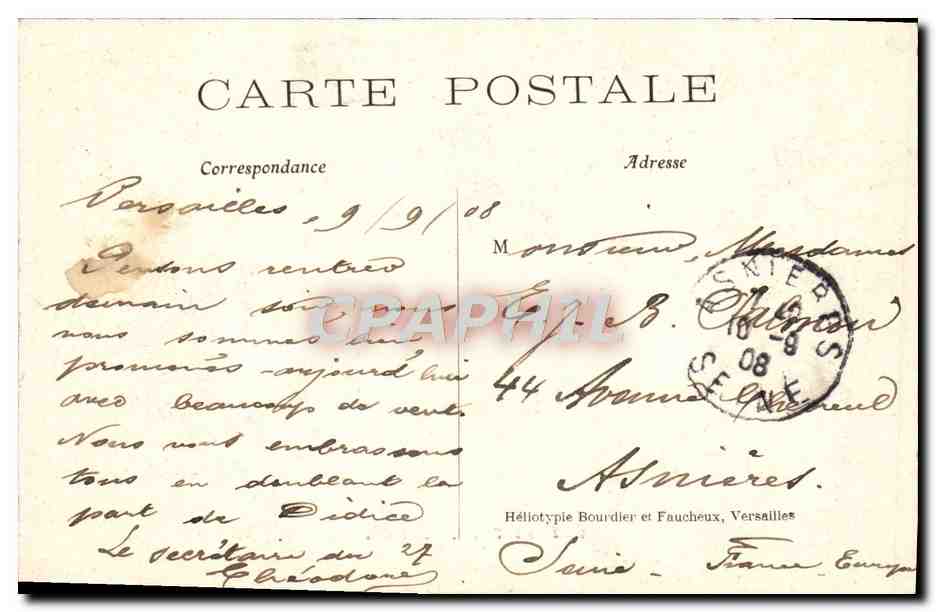 CARTE POSTALE
Correspondance
Versailles, 9/9/08
Pensons rentrer
demain soir nous
nous sommes
promenés aujourd'hui
avec beaucoup de vent.
Nous vous embrassons
tous en doublant la
part de Didice
Le secrétaire du 27
Théodore
Adresse
Monsieur, Mesdames
E. J. B.
44 Avenue Chevreul
Asnières.
Héliotypie Bourdier et Faucheux, Versailles
Seine - France Europe
ASNIERES
10 -9
08
SEINE
CPAPHIL